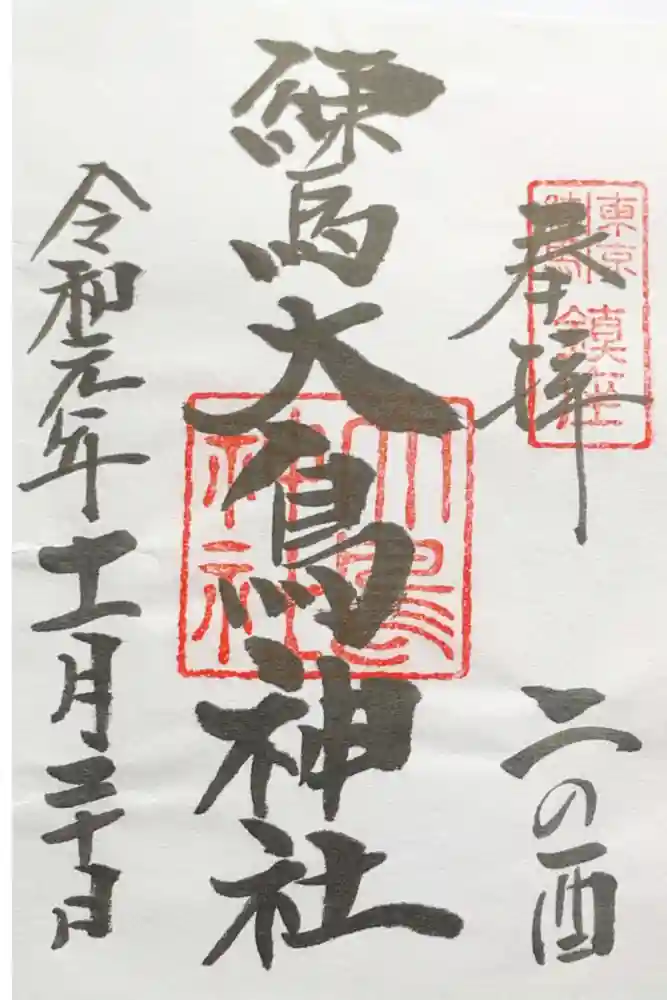 奉拝
東京
練馬
鎮座
二の酉
練馬大鳥神社
大鳥
神社
令和元年十一月二十日